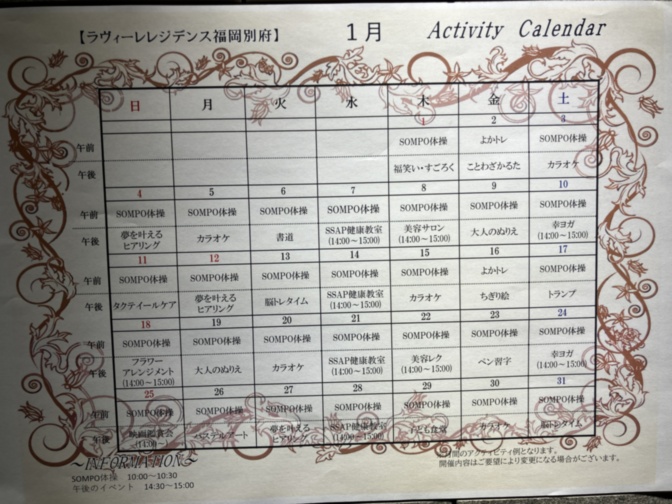 【ラヴィーレレジデンス福岡別府】 1月 Activity Calendar
日 月 火 水 木 金 土
1 2 3
午前 SOMPO体操 よかトレ SOMPO体操
午後 福笑い・すごろく ことわざかるた カラオケ
4 5 6 7 8 9 10
午前 SOMPO体操 SOMPO体操 SOMPO体操 SOMPO体操 SOMPO体操 SOMPO体操 SOMPO体操
午後 夢を叶えるヒアリング カラオケ 書道 SSAP健康教室(14:00~15:00) 美容サロン(14:00~15:00) 大人のぬりえ 幸ヨガ(14:00~15:00)
11 12 13 14 15 16 17
午前 SOMPO体操 SOMPO体操 SOMPO体操 SOMPO体操 SOMPO体操 よかトレ SOMPO体操
午後 タクテイールケア 夢を叶えるヒアリング 脳トレタイム SSAP健康教室(14:00~15:00) カラオケ ちぎり絵 トランプ
18 19 20 21 22 23 24
午前 SOMPO体操 SOMPO体操 SOMPO体操 SOMPO体操 SOMPO体操 SOMPO体操 SOMPO体操
午後 フラワーアレンジメント(14:00~15:00) 大人のぬりえ カラオケ SSAP健康教室(14:00~15:00) 美容レク(14:00~15:00) ペン習字 幸ヨガ(14:00~15:00)
25 26 27 28 29 30 31
午前 SOMPO体操 SOMPO体操 SOMPO体操 SOMPO体操 SOMPO体操 SOMPO体操 SOMPO体操
午後 映画鑑賞会(14:00~15:00) パステルアート 夢を叶えるヒアリング SSAP健康教室(14:00~15:00) 子ども食堂 カラオケ 脳トレタイム
~INFORMATION~
SOMPO体操 10:00~10:30
午後のイベント 14:30~15:00
間のアクティビティ例となります。
開催内容はご要望により変更になる場合がございます。